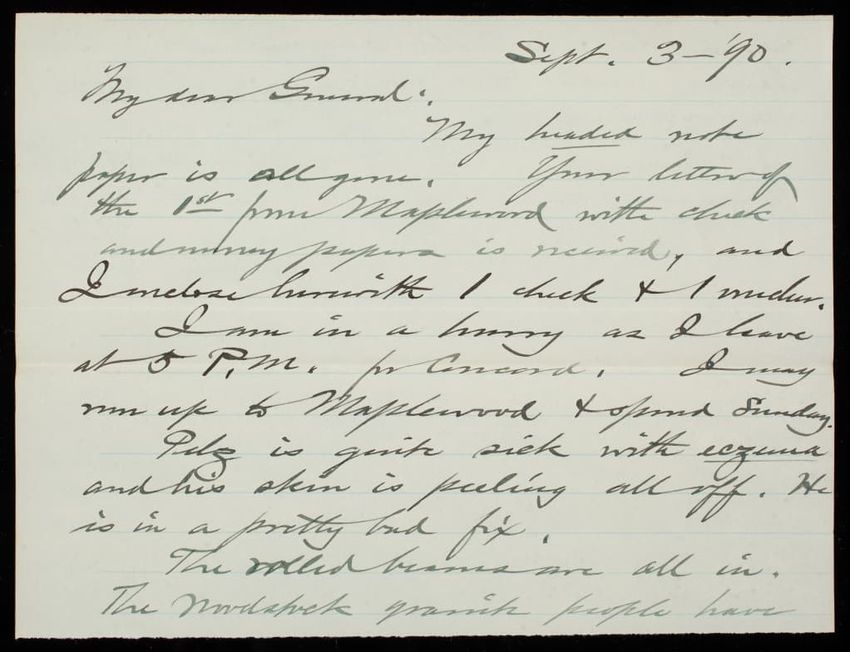 Sept. 3-'90.
My dear General:
My headed note
paper is all gone. Your letter of
the 1st from Maplewood with check
and money papers is received, and
I enclose herewith 1 check & 1 vucher.
I am in a hurry as I leave
at 5 P.M. for Concord. I may
run up to Maplewood & spend Sunday.
Pelz is quite sick with eczema
and his skin is peeling all off. He
is in a pretty bad fix.
The rolled beams are all in.
The Woodstock granite people have